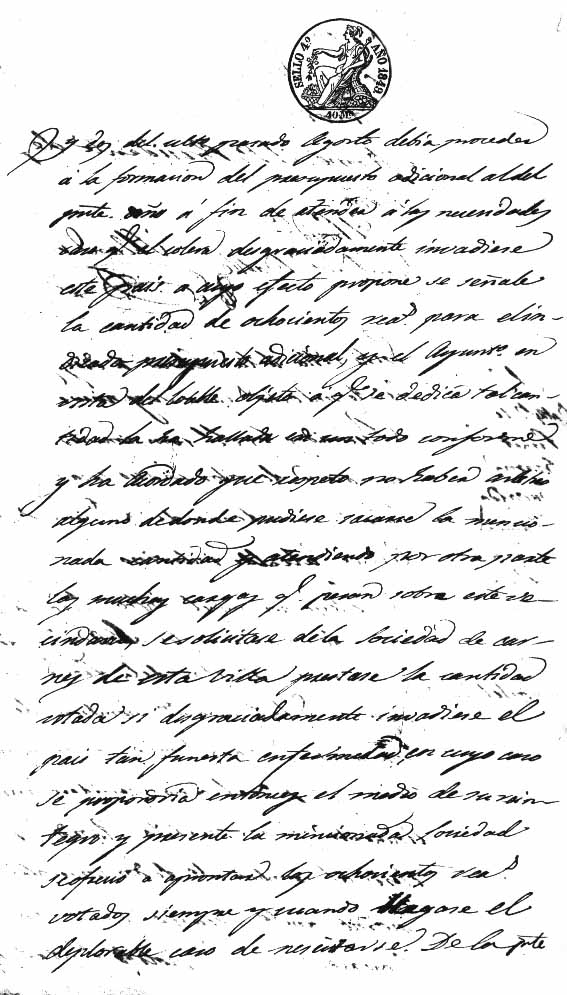 SELLO 4º AÑO 1849.
40 Ms
y dos del ultº pasado Agosto debia proceder
á la formacion del presupuesto adicional al del
pnte año á fin de atender á las necesidades
qe el colera desgraciadamente invadiese
este pais a cuyo efecto propone se señale
la cantidad de ochocientos reas para el in-
dicado presupuesto adicional, y el Ayunto en
vista del loable objeto a qe se dedica tal can-
tidad la ha hallado en un todo conforme
y ha acordado que respeto no haber arbitrio
alguno de donde pudiese sacarse la mencio-
nada cantidad y atendiendo por otra parte
las muchas cargas qe pesan sobre este ve-
cindario, se solicitase de la Sociedad de car-
nes de esta Villa prestase la cantidad
votada si desgraciadamente invadiese el
pais tan funesta enfermedad, en cuyo caso
se propondria entonces el medio de su rein-
tegro y presente la mencionada Sociedad
se ofrecio a aprontar los ochocientos reas
votados siempre y cuando llegase el
deplorable caso de nescitarse. De la pnte